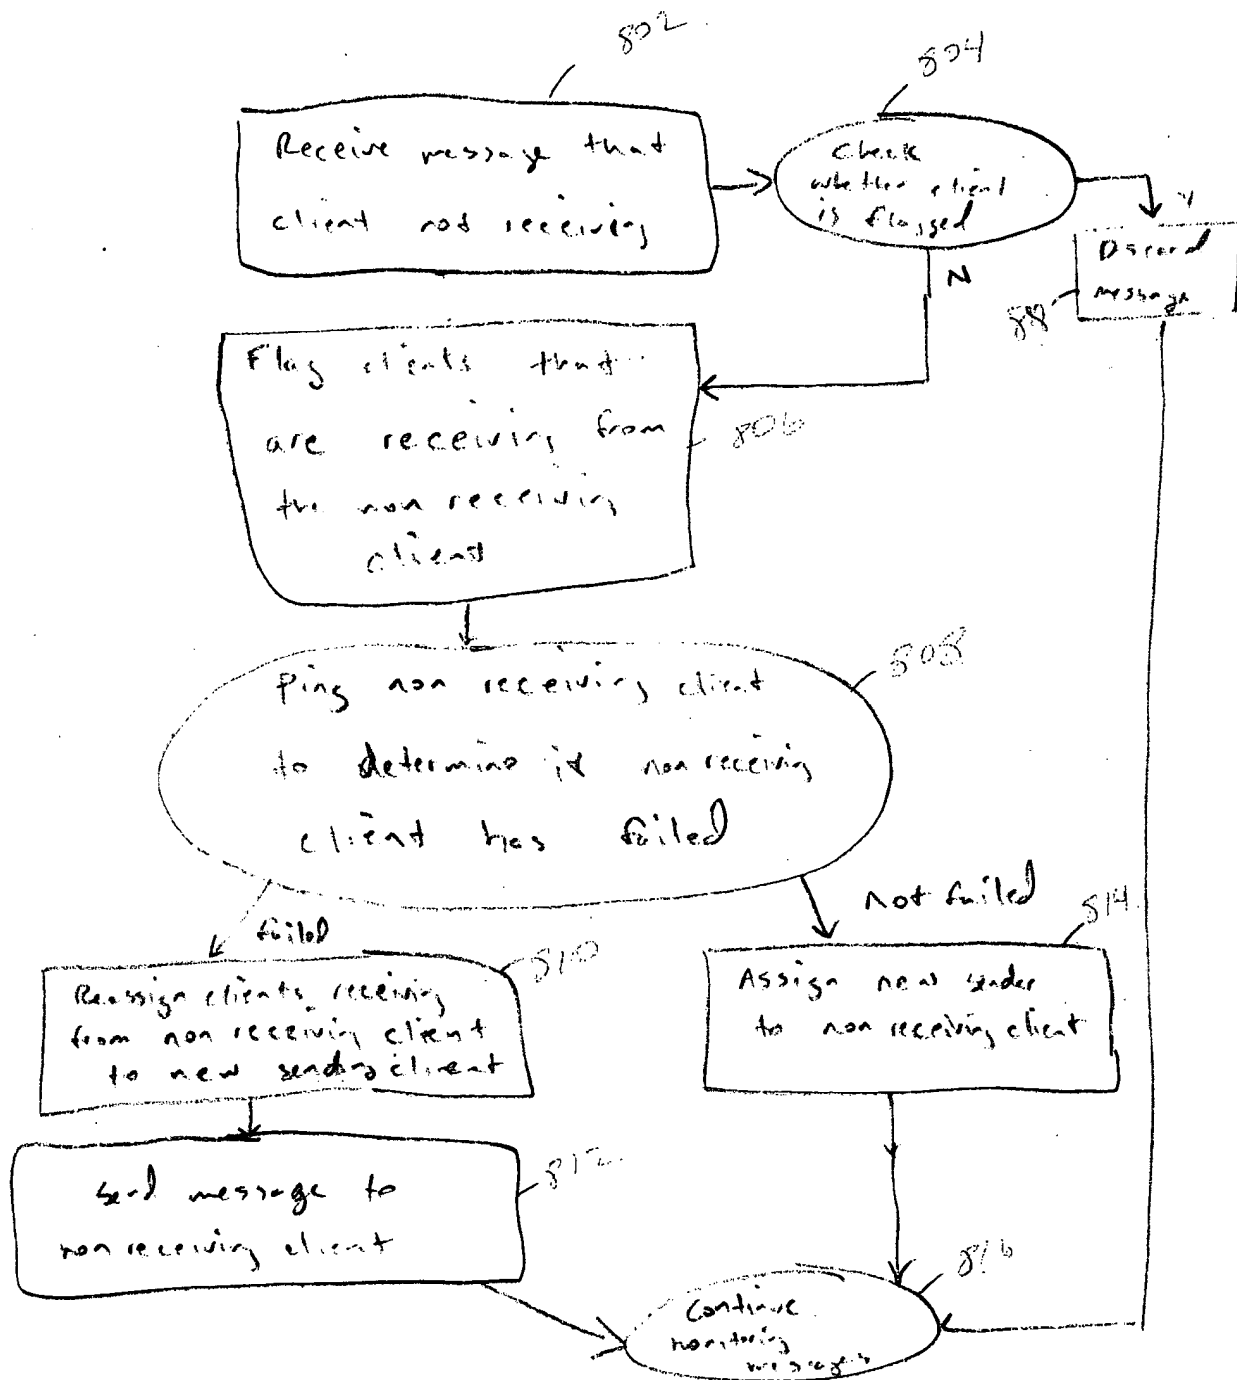 802
804
Receive message that
client not receiving
Check
whether client
is flagged
Y
Discard
message
N
Flag clients that
are receiving from
the non receiving
client
806
808
Ping non receiving client
to determine if non receiving
client has failed
failed
not failed
810
814
Reassign clients receiving
from non receiving client
to new sending client
Assign new sender
to non receiving client
812
Send message to
non receiving client
816
Continue
monitoring
messages